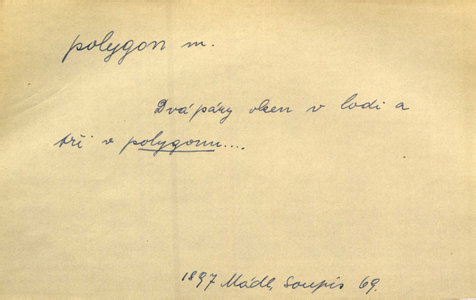 polygon m.
Dvá páry oken v lodi a
tři v polygonu....
1897 Mádl, Soupis 69.